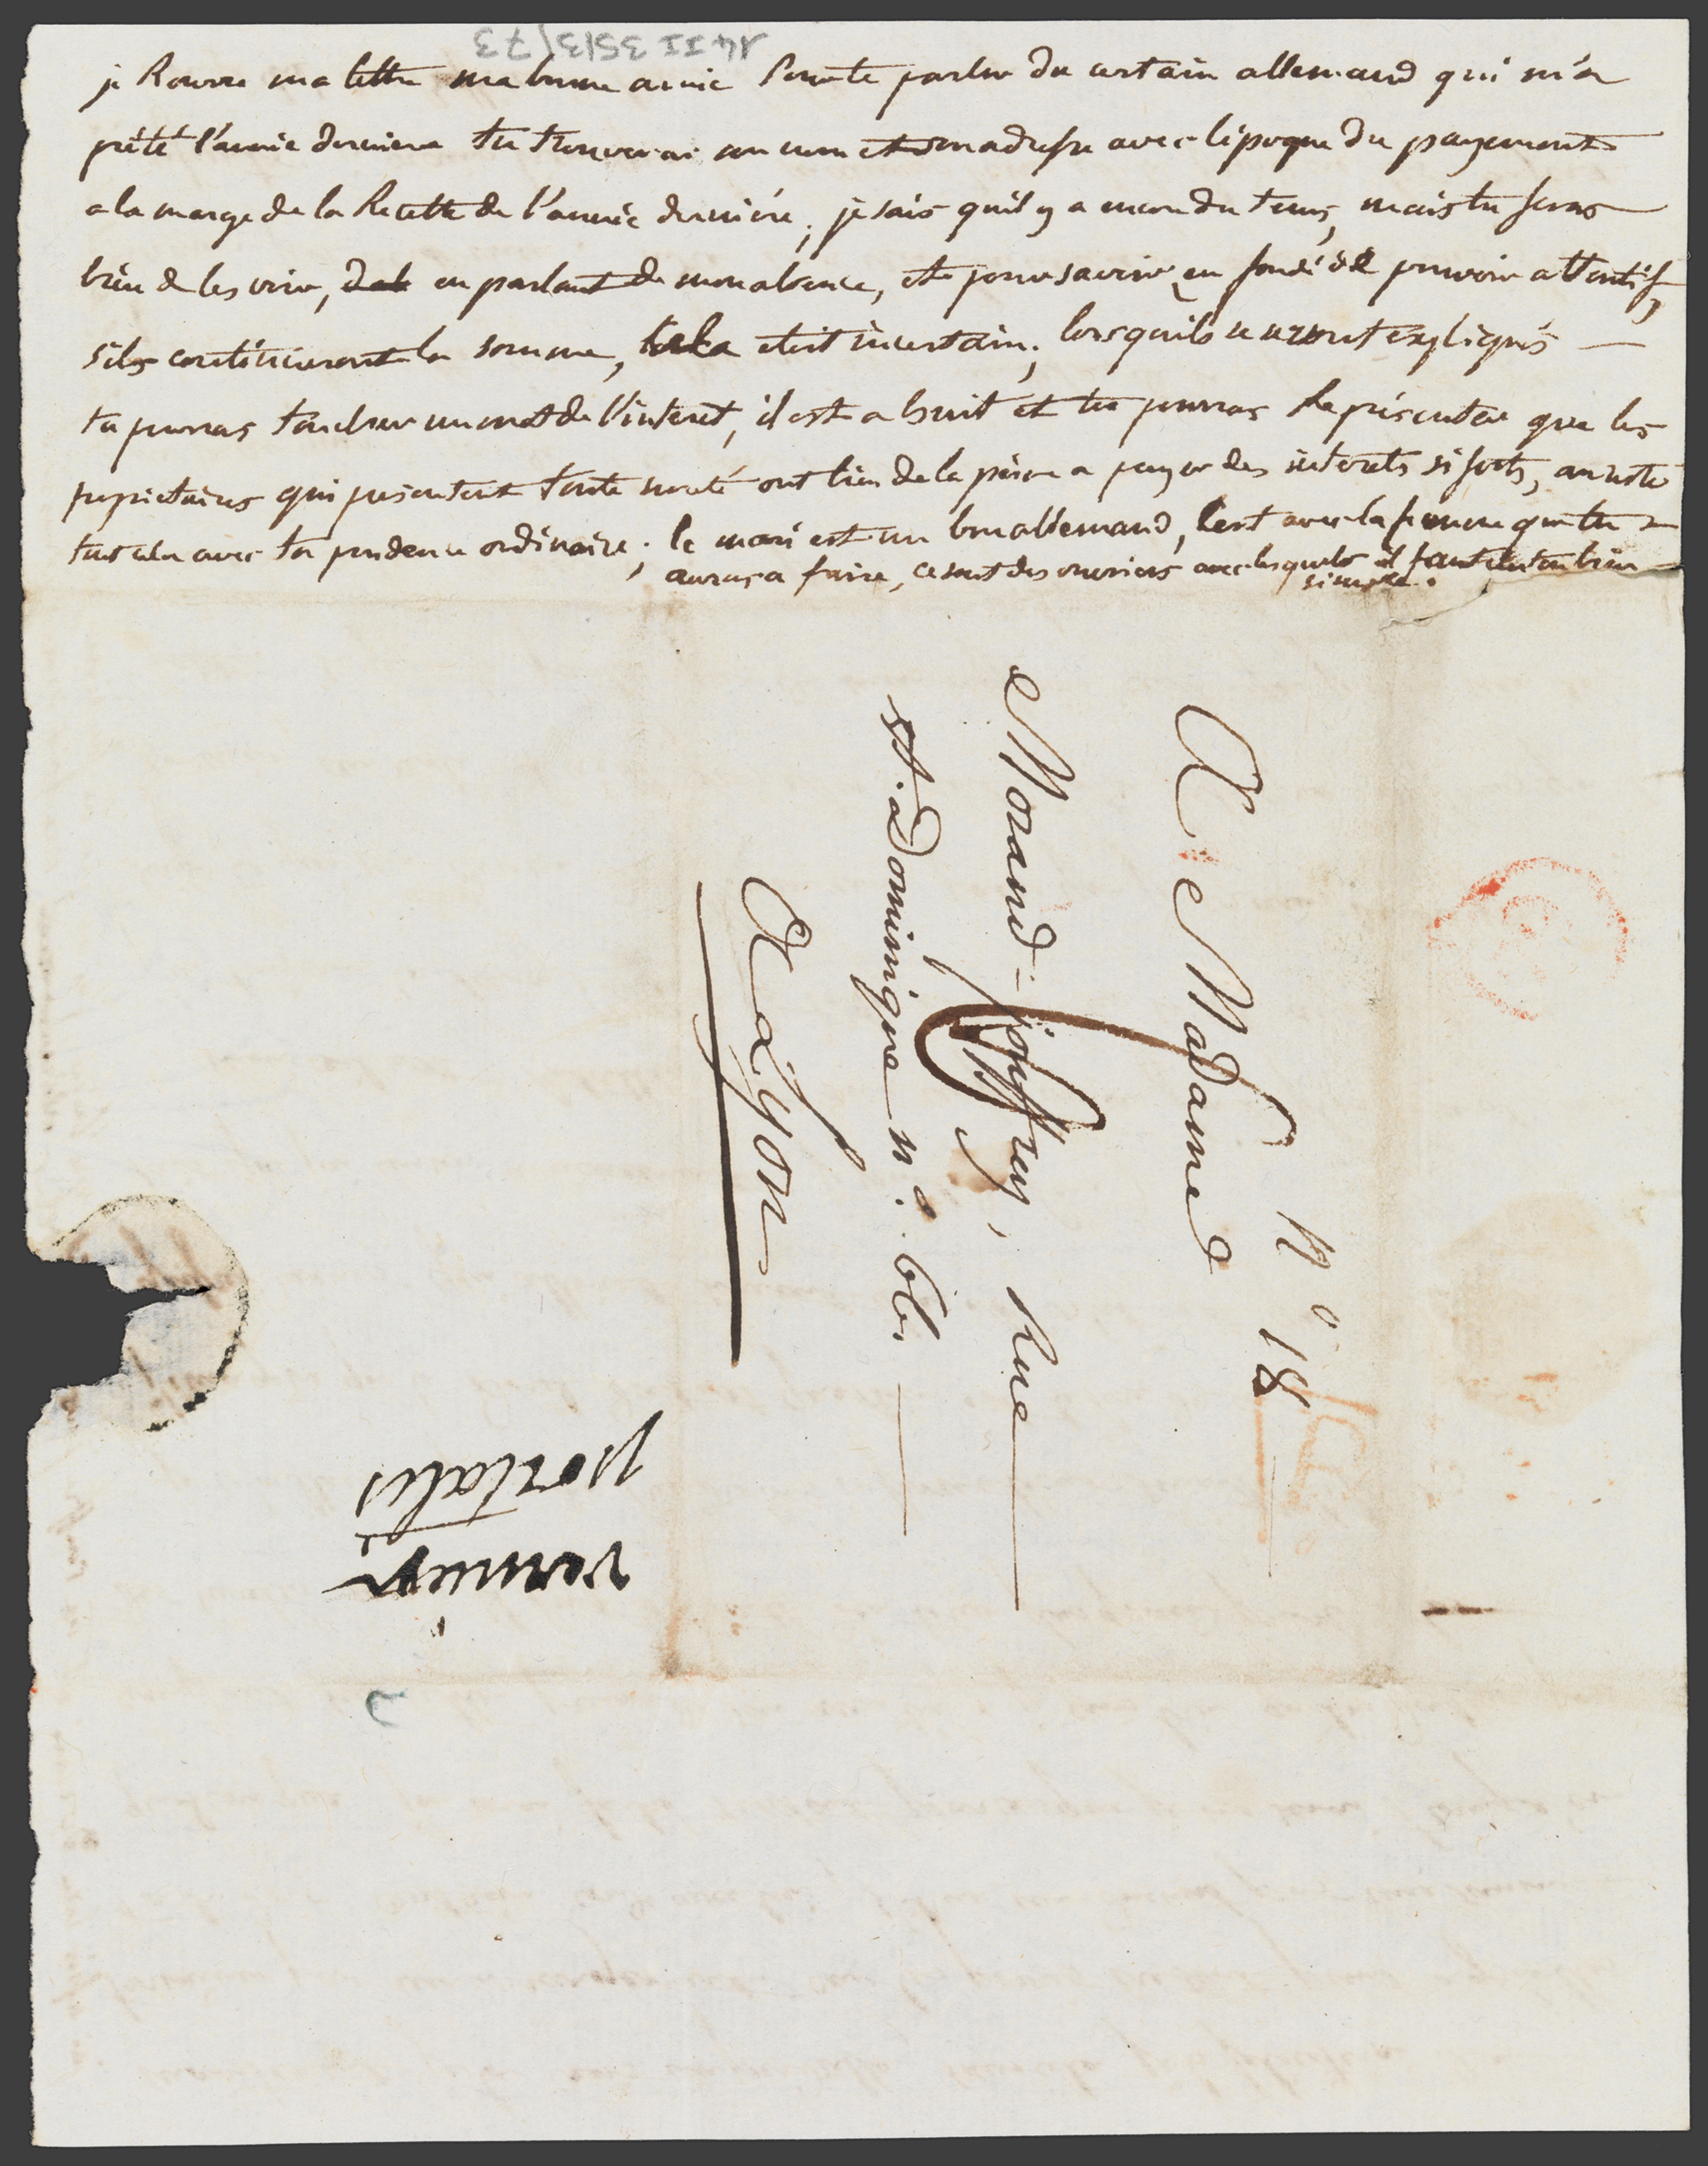 14 II 35(3)73
je Rouvre ma lettre ma bonne amie Pour te parler du certain allemand qui m'a
prêté l'année derniere tu trouveras son nom et son adresse avec l'époque du payement
a la marge de la Recette de l'année derniére; je sais quil y a encore du tems, mais tu feras
bien de les voir, en parlant de mon absence, et pour savoir en fondé de pouvoir attentif,
sils continueront la somme, cela etoit incertain; lorsquils se seront expliqués
tu pourras toucher un mot de l'interet, il est a huit et tu pourras Représenter que les
propietaires qui presentent toute sureté ont bien de la peine a payer des interets si forts, au reste
tout cela avec ta prudence ordinaire; le mari est un bon allemand, c'est avec la femme que tu
auras a faire, ce sont des ouvriers avec lesquels il faut etre bien
simple.
N° 18
A Madame
Morand-jouffrey, Rue
St. Dominique n°. 66.
A Lyon
vernier
portalis